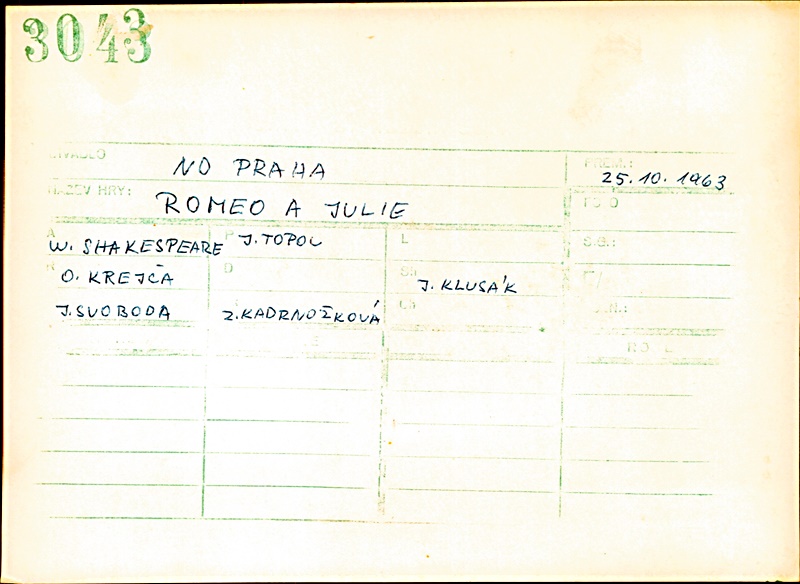 3043
DIVADLO NO PRAHA PREM.: 25.10.1963
NÁZEV HRY: ROMEO A JULIE
A W. SHAKESPEARE P J. TOPOL L S.G.:
R O. KREJČA D SH J. KLUSÁK F/
J. SVOBODA Z. KADRNOŽKOVÁ CH